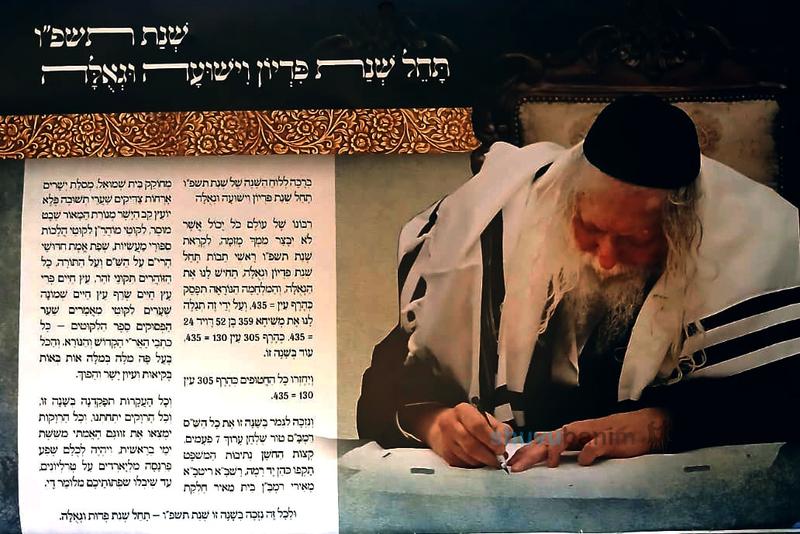 שְׁנַת תשפ"ו
תָּהֵל שְׁנַת פִּדְיוֹן וִישׁוּעָה וּגְאֻלָּה
ברכה ללוח השנה של שנת תשפ"ו
תהל שנת פדיון וישועה וגאולה
רבונו של עולם כל יכול אשר
לא יבצר ממך מזמה, לקראת
שנת תשפ"ו ראשי תבות תהל
שנת פדיון וגאלה, תחיש לנו את
הגאלה, והמלחמה הנוראה תפסק
כהרף עין = 435, ועל ידי זה תתגלה
לנו את משיחא 359 בן 52 דויד 24
= 435. כהרף 305 עין 130 = 435.
עוד בשנה זו.
ויחזרו כל החטופים כהרף 305 עין
130 = 435.
ונזכה לגמר בשנה זו את כל הש"ס
רמב"ם טור שלחן ערוך 7 פעמים,
קצות החשן נתיבות המשפט
תקפו כהן יד רמה, רשב"א ריטב"א
מאירי רמב"ן בית מאיר חלקת
מחוקק בית שמואל, מסלת ישרים
ארחות צדיקים שערי תשובה פלא
יועץ קב הישר מנורת המאור שבט
מוסר, לקוטי מוהר"ן לקוטי הלכות
ספורי מעשיות, שפת אמת חדושי
הרי"ם על הש"ס ועל התורה, כל
הזוהרים תקוני זהר, עץ חיים פרי
עץ חיים שרף עץ חיים שמונה
שערים לקוטי מאמרים שער
הפסוקים ספר הלקוטים – כל
כתבי האר"י הקדוש והנורא. והכל
בעל פה מלה במלה אות באות
בקיאות ועיון ישר והפוך.
וכל העקרות תפקדנה בשנה זו,
וכל הרוקים יתחתנו, וכל הרוקות
ימצאו את זווגם האמתי מששת
ימי בראשית. ויהיה לכלם שפע
פרנסה מליארדים על טרליונים,
עד שיבלו שפתותיכם מלומר די.
ולכל זה נזכה בשנה זו שנת תשפ"ו – תהל שנת פדות וגאלה.
shuvubanim